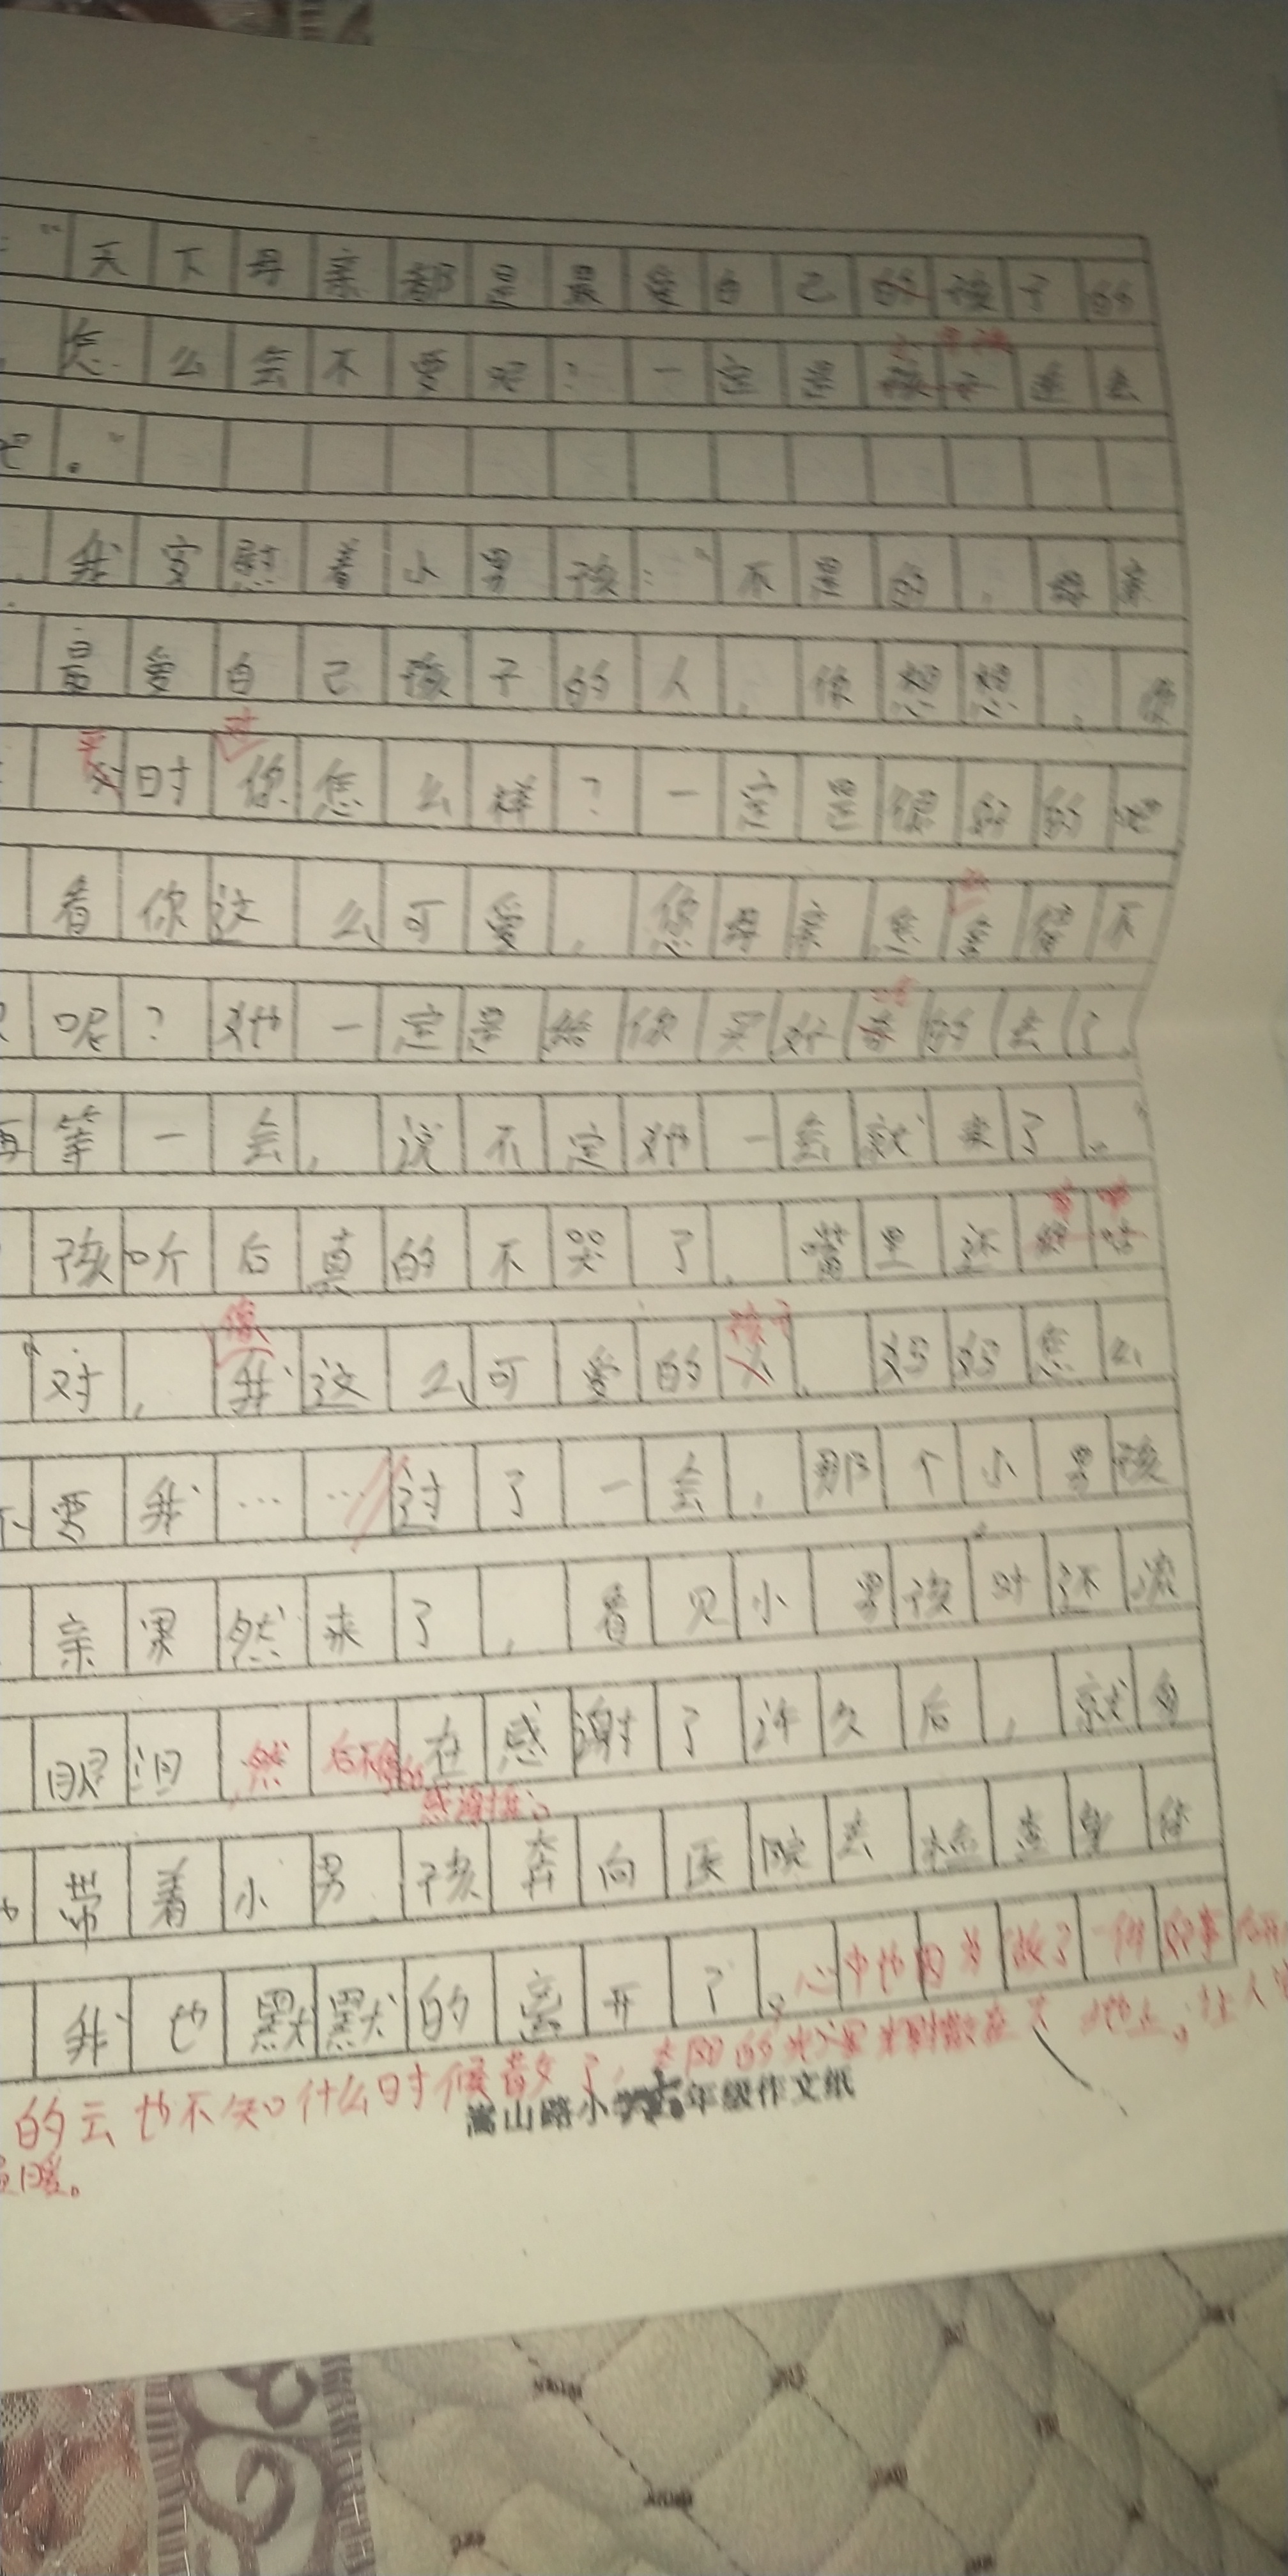 ：“天下母亲都是最爱自己的孩子的
，怎么会不要呢？一定是孩子走丢
吧。”
我安慰着小男孩：“不是的，母亲
最爱自己孩子的人，你想想，你
平
对
时你怎么样？一定是很好的吧
看你这么可爱，您母亲怎会舍不
呢？她一定是给你买好的去了，
再等一会，说不定她一会就来了。”
孩听后真的不哭了，嘴里还
像
孩子
“对，我这么可爱的人，妈妈怎么
不要我……过了一会，那个小男孩
亲果然来了，看见小男孩时还流
眼泪，然后不停的在感谢了许久后，就匆
感谢我。
带着小男孩奔向医院去检查身体
我也默默的离开了。心中也因为做了一件好事
的云也不知什么时候散了，太阳的光深深照散在大地上，让人
嵩山路小学六年级作文纸
暖。